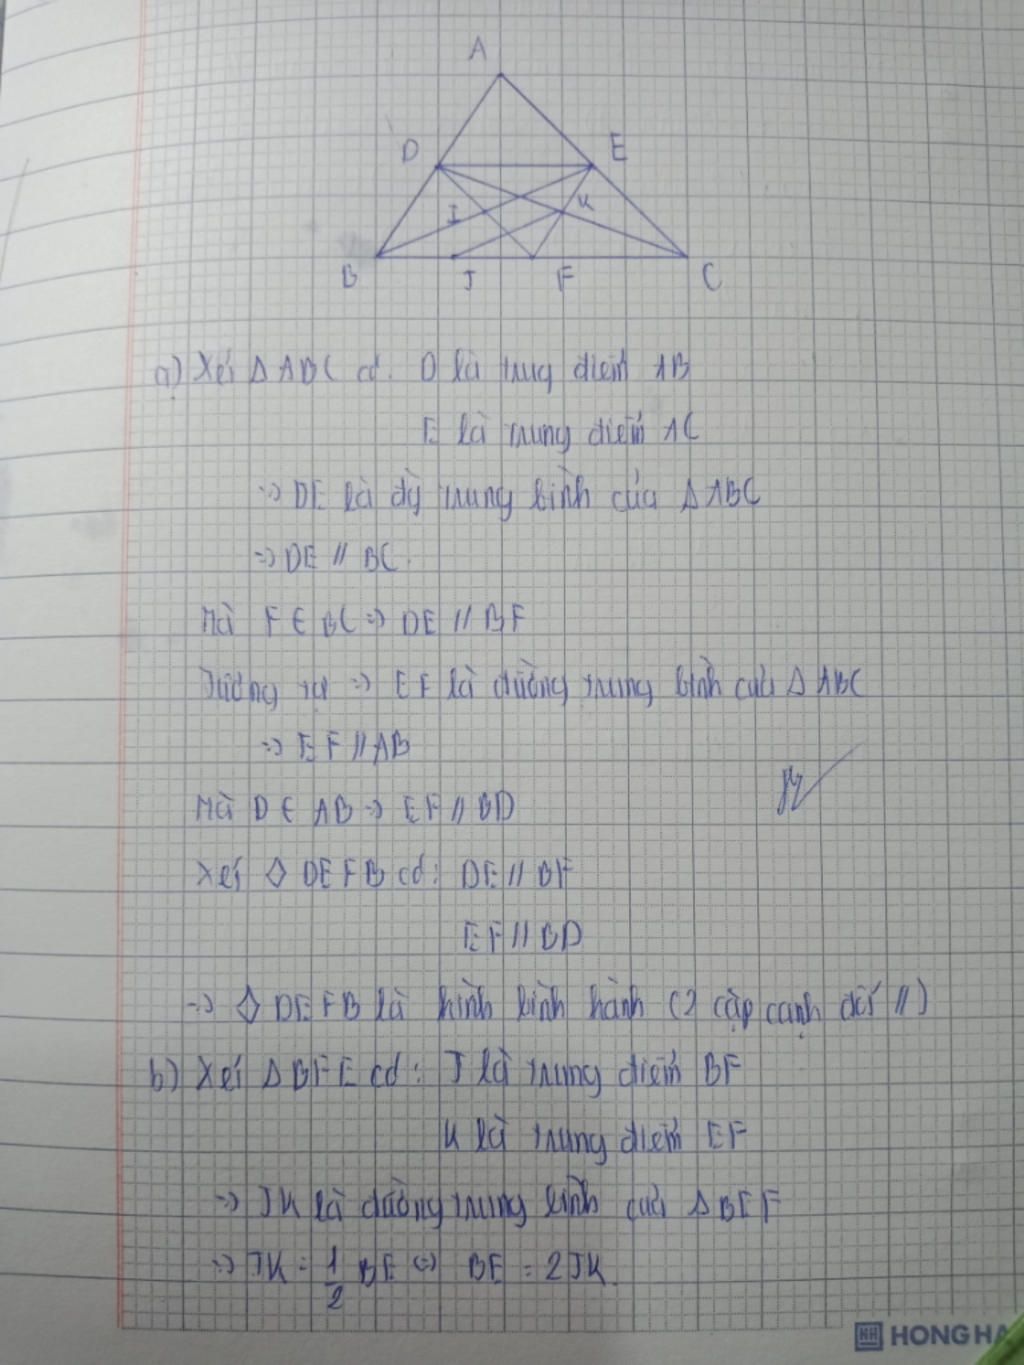 A
D
E
I
K
B
J
F
C
a) Xét Δ ABC có: D là trung điểm AB
E là trung điểm AC
=> DE là đg trung bình của Δ ABC
=> DE // BC.
Mà F ∈ BC => DE // BF
Tương tự => EF là đường trung bình của Δ ABC
=> EF // AB
Mà D ∈ AB => EF // BD
Xét ◇ DEFB có: DE // BF
EF // BD
=> ◇ DEFB là hình bình hành (2 cặp cạnh đối //)
b) Xét Δ BFE có: J là trung điểm BF
K là trung điểm EF
=> JK là đường trung bình của Δ BEF
=> JK = 1/2 BE <=> BE = 2JK.
HH HONG HA